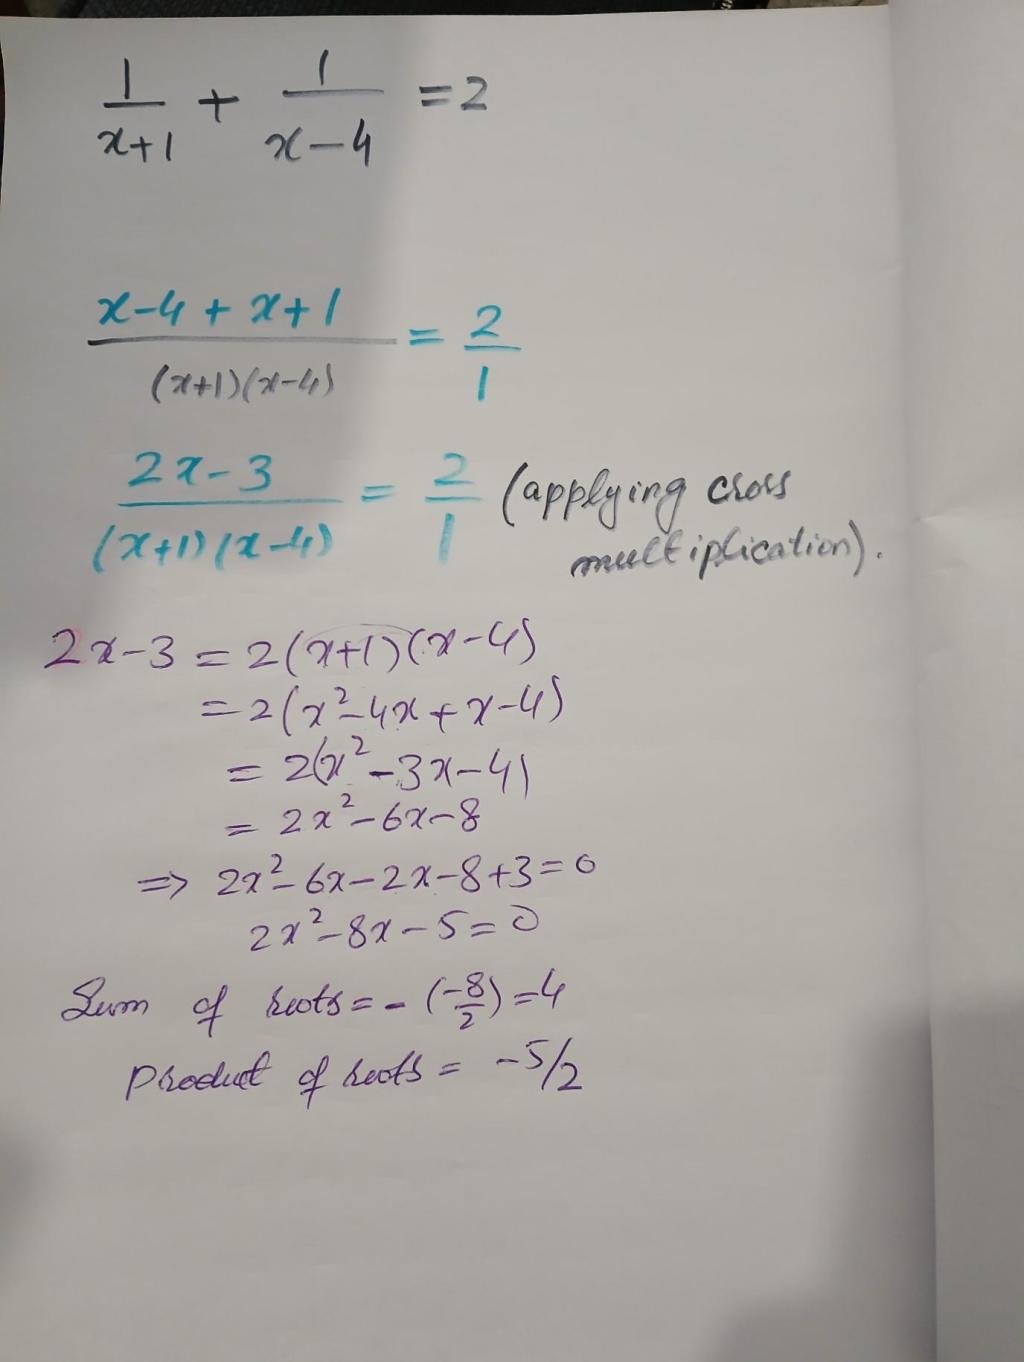 1/(x+1) + 1/(x-4) = 2
(x-4 + x+1)/((x+1)(x-4)) = 2/1
(2x-3)/((x+1)(x-4)) = 2/1 (applying cross
multiplication).
2x-3 = 2(x+1)(x-4)
= 2(x²-4x+x-4)
= 2(x²-3x-4)
= 2x²-6x-8
⇒ 2x²-6x-2x-8+3=0
2x²-8x-5=0
Sum of roots = -(-8/2) = 4
Product of roots = -5/2